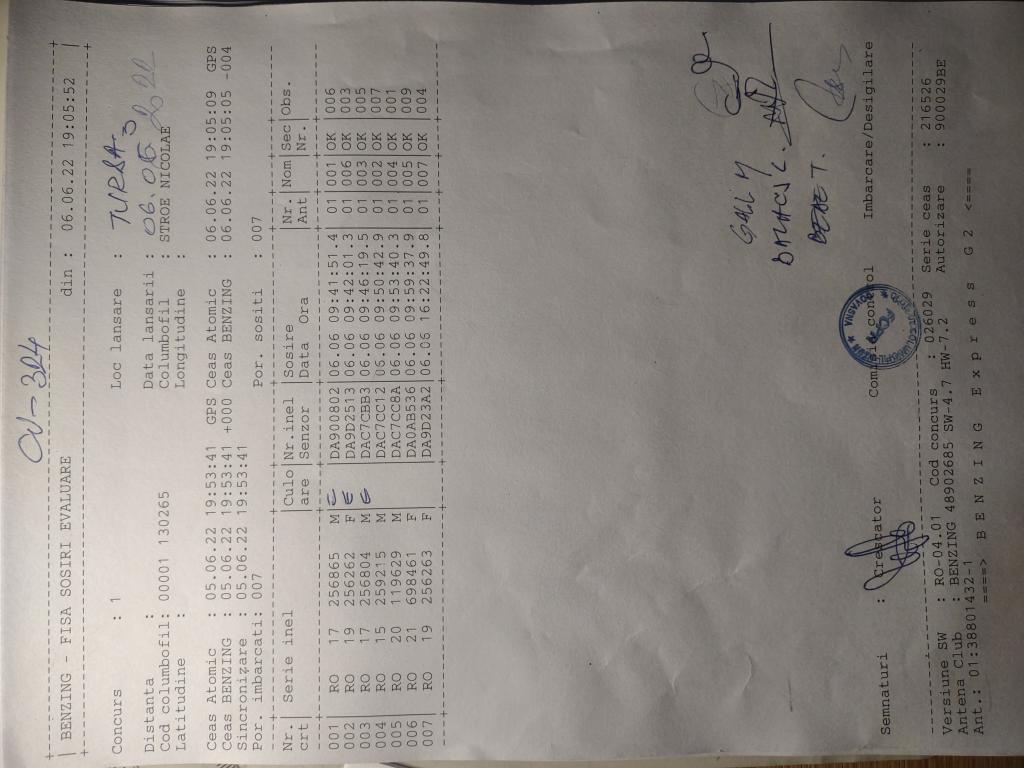 CV-324
BENZING - FISA SOSIRI EVALUARE din : 06.06.22 19:05:52
Concurs : 1 Loc lansare : TURDA 3
Distanta : Data lansarii : 06.06.2022
Cod columbofil: 00001 130265 Columbofil : STROE NICOLAE
Latitudine : Longitudine :
Ceas Atomic : 05.06.22 19:53:41 GPS Ceas Atomic : 06.06.22 19:05:09 GPS
Ceas BENZING : 05.06.22 19:53:41 +000 Ceas BENZING : 06.06.22 19:05:05 -004
Sincronizare : 05.06.22 19:53:41
Por. imbarcati: 007 Por. sositi : 007
Nrt | Serie inel | Culo | Nr.inel | Sosire | Nr. | Nom | Sec | Obs.
crt | are | Senzor | Data Ora | Ant | Nr.
001 | RO 17 256865 M | C | DA900802 | 06.06 09:41:51.4 | 01 | 001 | OK | 006
002 | RO 19 256262 F | E | DA9D2513 | 06.06 09:42:01.3 | 01 | 006 | OK | 003
003 | RO 17 256804 M | G | DAC7CBB3 | 06.06 09:46:19.5 | 01 | 003 | OK | 005
004 | RO 15 259215 M | DAC7CC12 | 06.06 09:50:42.9 | 01 | 002 | OK | 007
005 | RO 20 119629 M | DAC7CC8A | 06.06 09:53:40.3 | 01 | 004 | OK | 001
006 | RO 21 698461 F | DA0AB536 | 06.06 09:59:37.9 | 01 | 005 | OK | 009
007 | RO 19 256263 F | DA9D23A2 | 06.06 16:22:49.8 | 01 | 007 | OK | 004
GAIL Y
C.
T.
Semnaturi : Crescator control Imbarcare/Desigilare
COVASNA
FCPR
Versiune SW : RO-04.01 Cod concurs : 026029 Serie ceas : 216526
Antena Club : BENZING 48902685 SW-4.7 HW-7.2 Autorizare : 900029BE
Ant.: 01:38801432-1
====> B E N Z I N G E x p r e s s G 2 <====